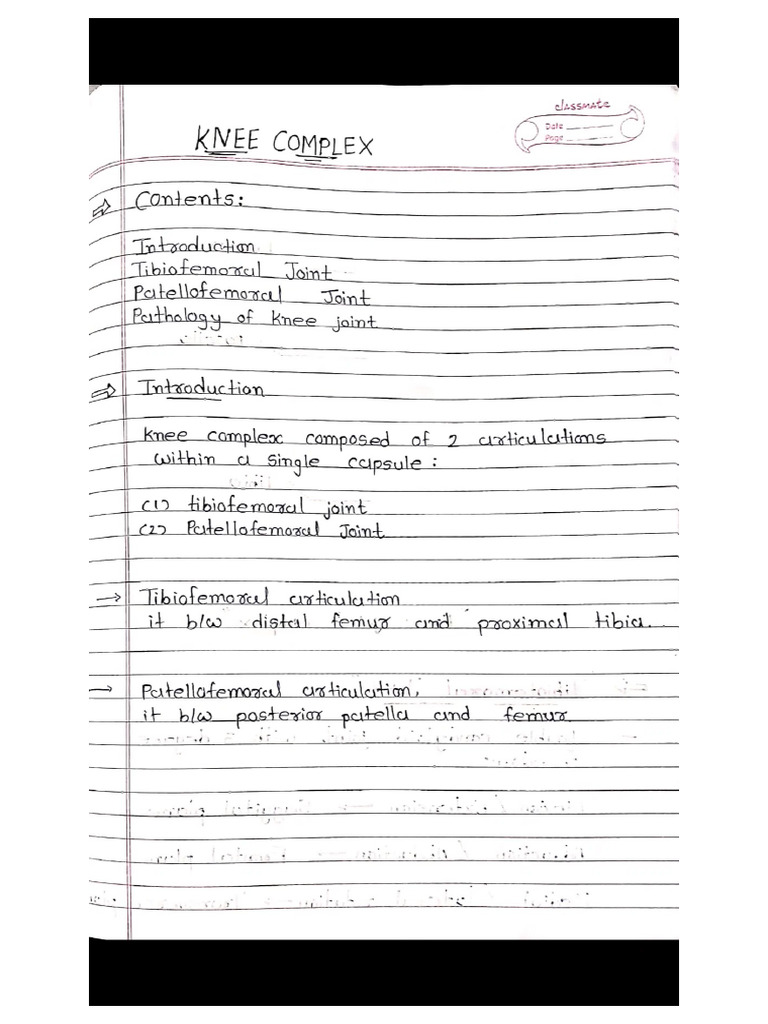 classmate
Date
Page
KNEE COMPLEX
⇒ Contents:
Introduction
Tibiofemoral Joint
Patellofemoral Joint
Pathology of knee joint
⇒ Introduction
Knee complex composed of 2 articulations
within a single capsule:
(1) tibiofemoral joint
(2) Patellofemoral Joint
→ Tibiofemoral articulation
it b/w distal femur and proximal tibia.
→ Patellofemoral articulation,
it b/w posterior patella and femur.